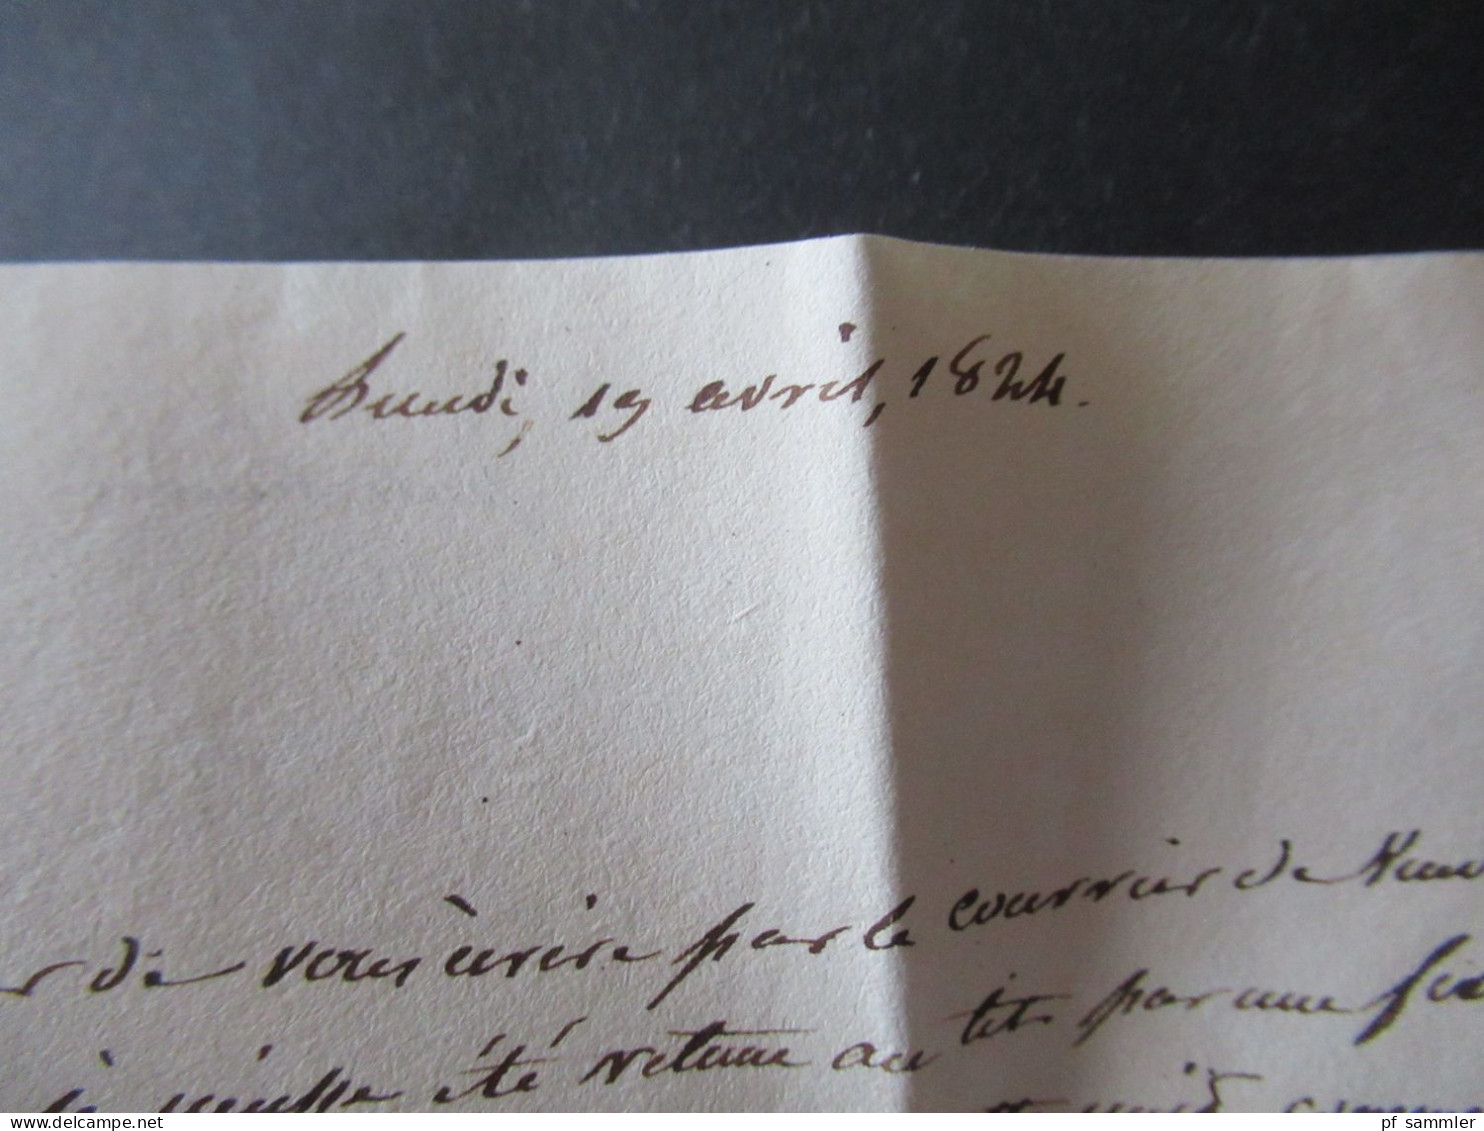 Lundi, 19 avril, 1824.
de vous écrire par le courrier de
je n'eusse été retenu au lit par une
delcampe.net
pf_sammler